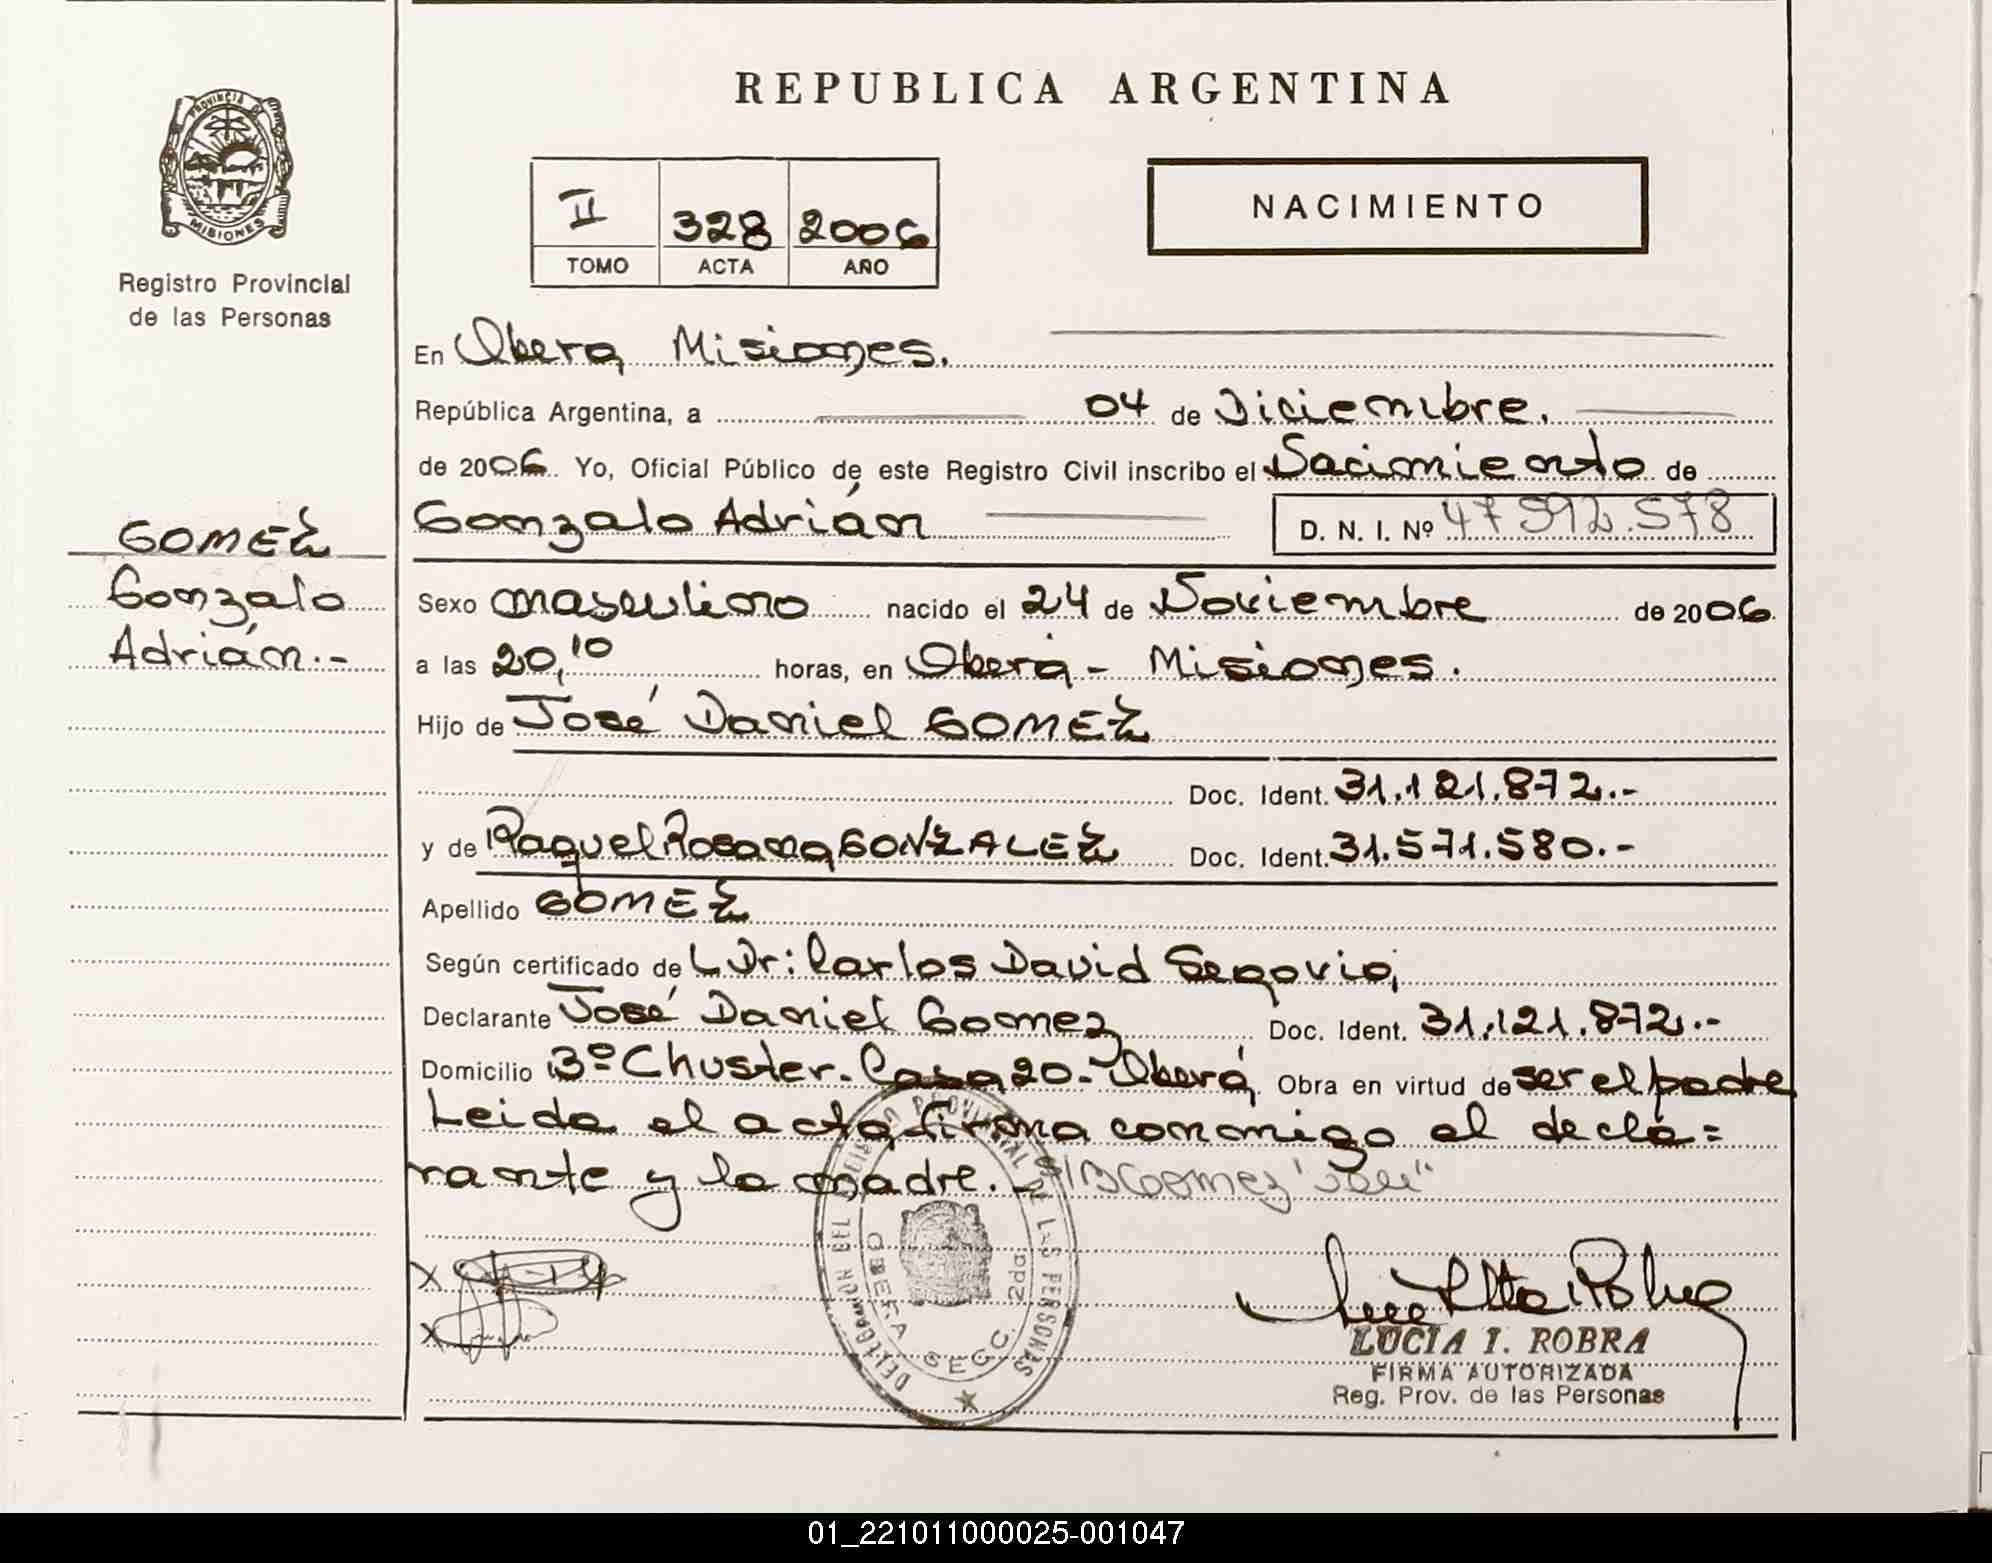 REPUBLICA ARGENTINA
PROVINCIA DE MISIONES
Registro Provincial
de las Personas
II 328 2006
TOMO ACTA AÑO
NACIMIENTO
En Obera, Misiones.
República Argentina, a 04 de Diciembre.
de 2006. Yo, Oficial Público de este Registro Civil inscribo el Nacimiento de
Gonzalo Adrián D. N. I. Nº 47 592.578
GOMEZ
Gonzalo
Adrián.-
Sexo masculino nacido el 24 de Noviembre de 2006
a las 20,10 horas, en Oberá - Misiones.
Hijo de José Daniel GOMEZ
Doc. Ident. 31.121.872.-
y de Raquel Rosana GONZALEZ Doc. Ident. 31.571.580.-
Apellido GOMEZ
Según certificado de L Dr: Carlos David Segovia,
Declarante José Daniel Gomez Doc. Ident. 31.121.872.-
Domicilio Bº Chuster. Casa 20.- Oberá. Obra en virtud de ser el padre
Leida el acta, firma conmigo el decla=
rante y la madre.- Gomez "José"
DELEGACION DEL REGISTRO PROVINCIAL DE LAS PERSONAS
OBERA SECC. 2da
LUCIA I. ROBRA
FIRMA AUTORIZADA
Reg. Prov. de las Personas
01_221011000025-001047